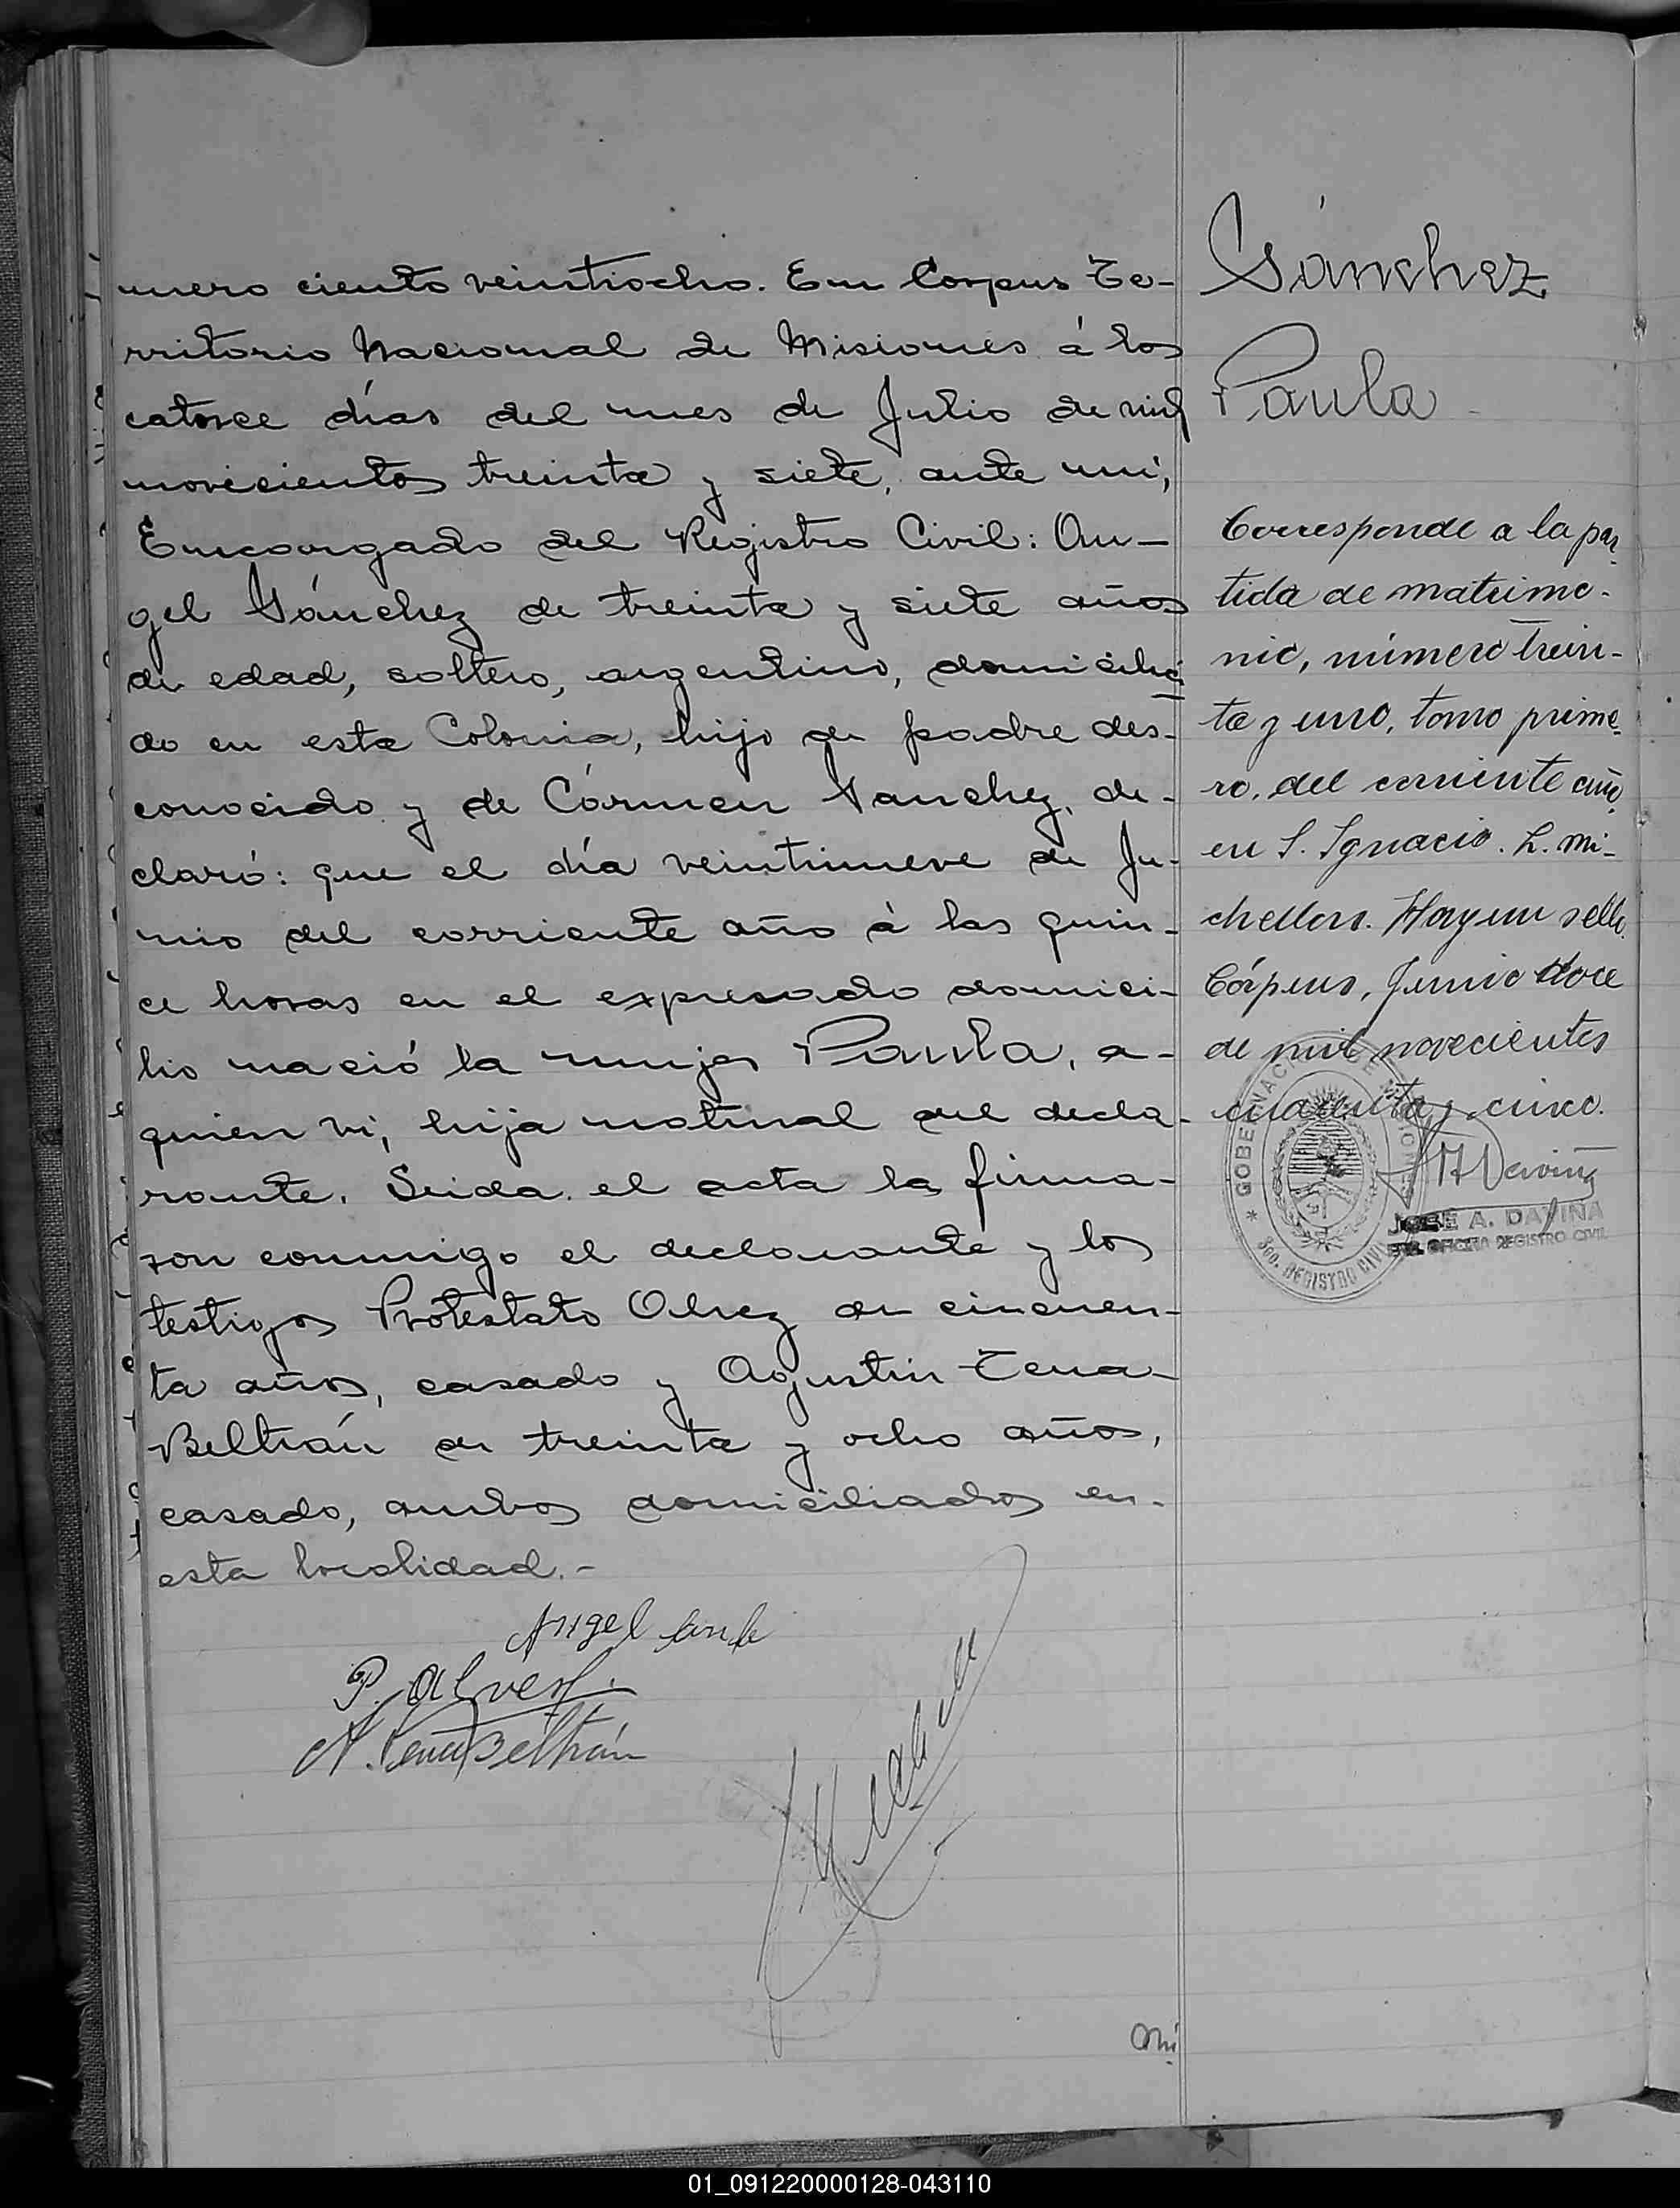 mero ciento veintiocho. En Corpus Te-
rritorio Nacional de Misiones á los
catorce días del mes de Julio de mil
novecientos treinta y siete, ante mí,
Encargado del Registro Civil: An-
gel Sánchez de treinta y siete años
de edad, soltero, argentino, domicilia
do en esta Colonia, hijo de padre des-
conocido y de Cármen Sanchez, de-
claró: que el día veintinueve de Ju-
nio del corriente año á las quin-
ce horas en el expresado domici-
lio nació la mujer Paula, a-
quien ví, hija natural del decla-
rante. Leida el acta la firma-
ron conmigo el declarante y los
testigos Protestato Alvez de cincuen-
ta años, casado y Agustin Tena-
Beltrán de treinta y ocho años,
casado, ambos domiciliados en-
esta localidad.-
Angel
P. Alvez
A. Tena Beltrán
Nú
Sánchez
Paula
Corresponde a la par
tida de matrimo-
nio, número trein-
ta y uno, tomo prime-
ro, del corriente año,
en S. Ignacio. L. Mi-
chellon. Hay un sello.
Córpus, Junio doce
de mil novecientos
cuarenta y cinco.
GOBERNACION DE MISIONES
* REGISTRO CIVIL
JOSE A. DAVIÑA
ENC. OFICINA REGISTRO CIVIL
01_091220000128-043110